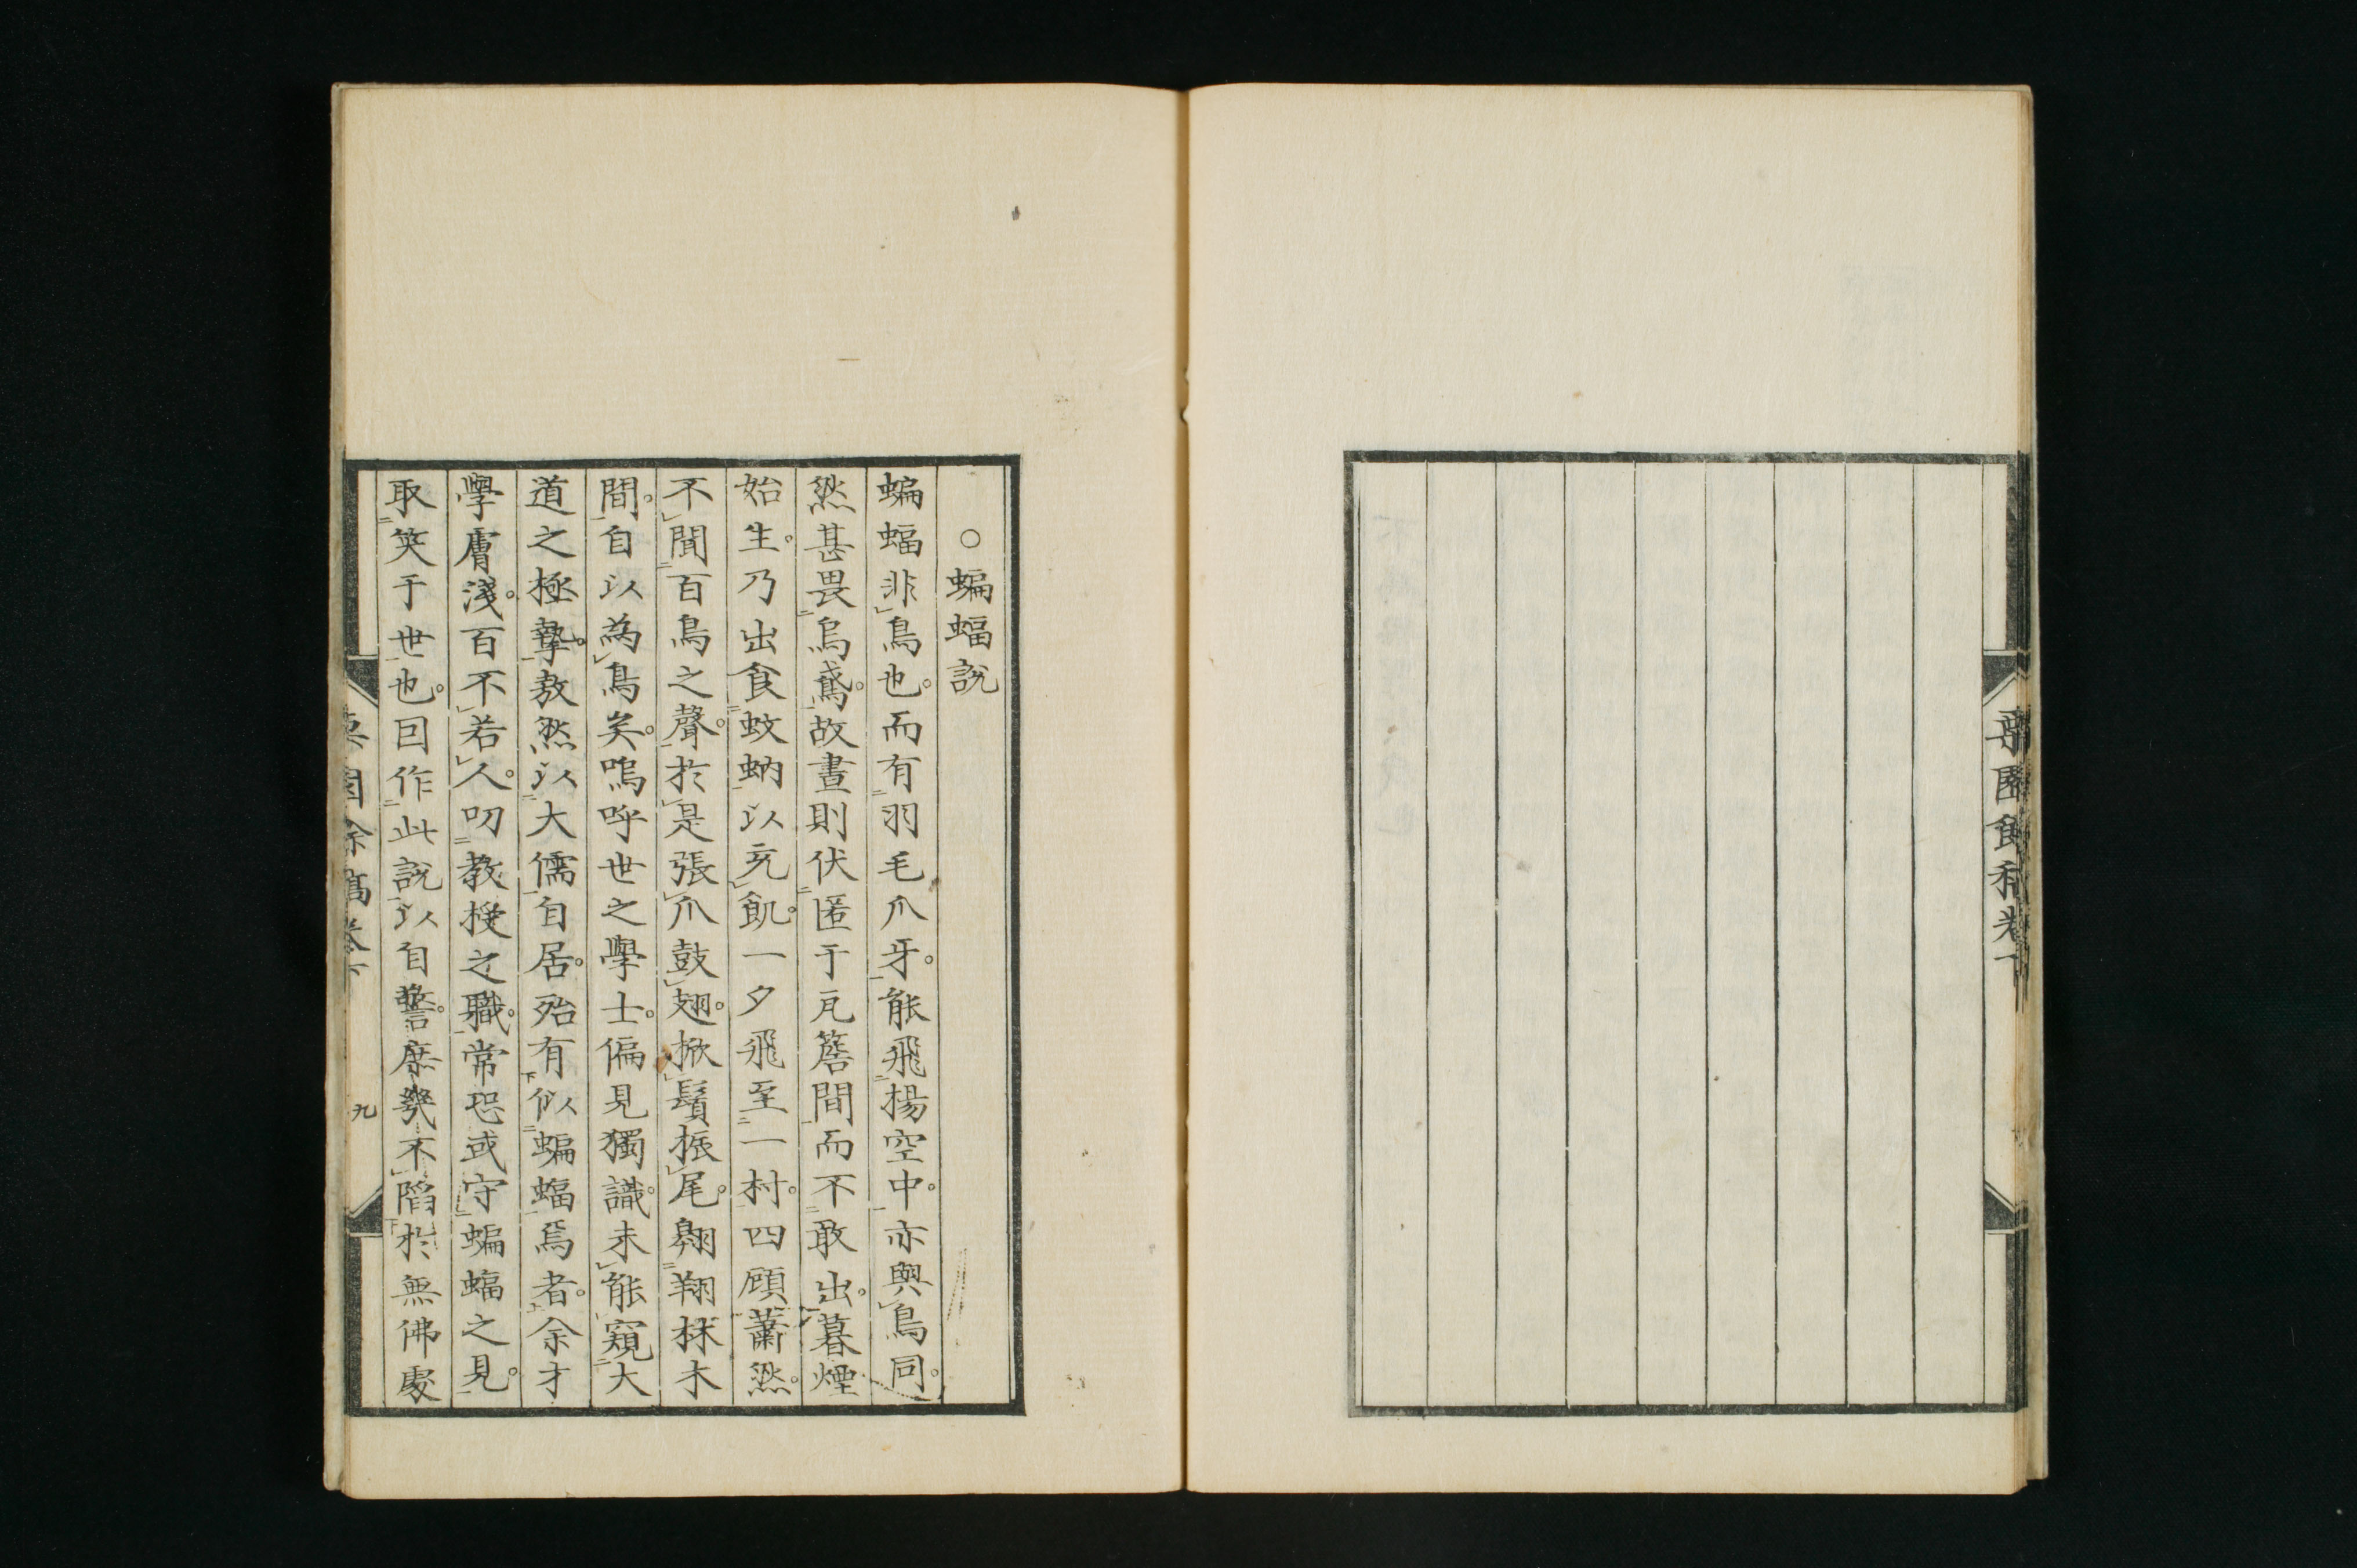 ○蝙蝠說
蝙蝠非鳥也。而有羽毛爪牙。能飛揚空中。亦與鳥同。
然甚畏烏鳶。故晝則伏匿于瓦簷間而不敢出。暮煙
始生。乃出食蚊蚋以充飢。一夕飛至一村。四顧蕭然。
不聞百鳥之聲。於是張爪鼓翅。掀鬚振尾。翱翔林木
間。自以為鳥矣。嗚呼世之學士。偏見獨識。未能窺大
道之極摯。敖然以大儒自居。殆有似蝙蝠焉者。余才
學膚淺。百不若人。叨教授之職。常恐或守蝙蝠之見。
取笑于世也。因作此說以自警。庶幾不陷於無佛處
園餘稿卷下
九